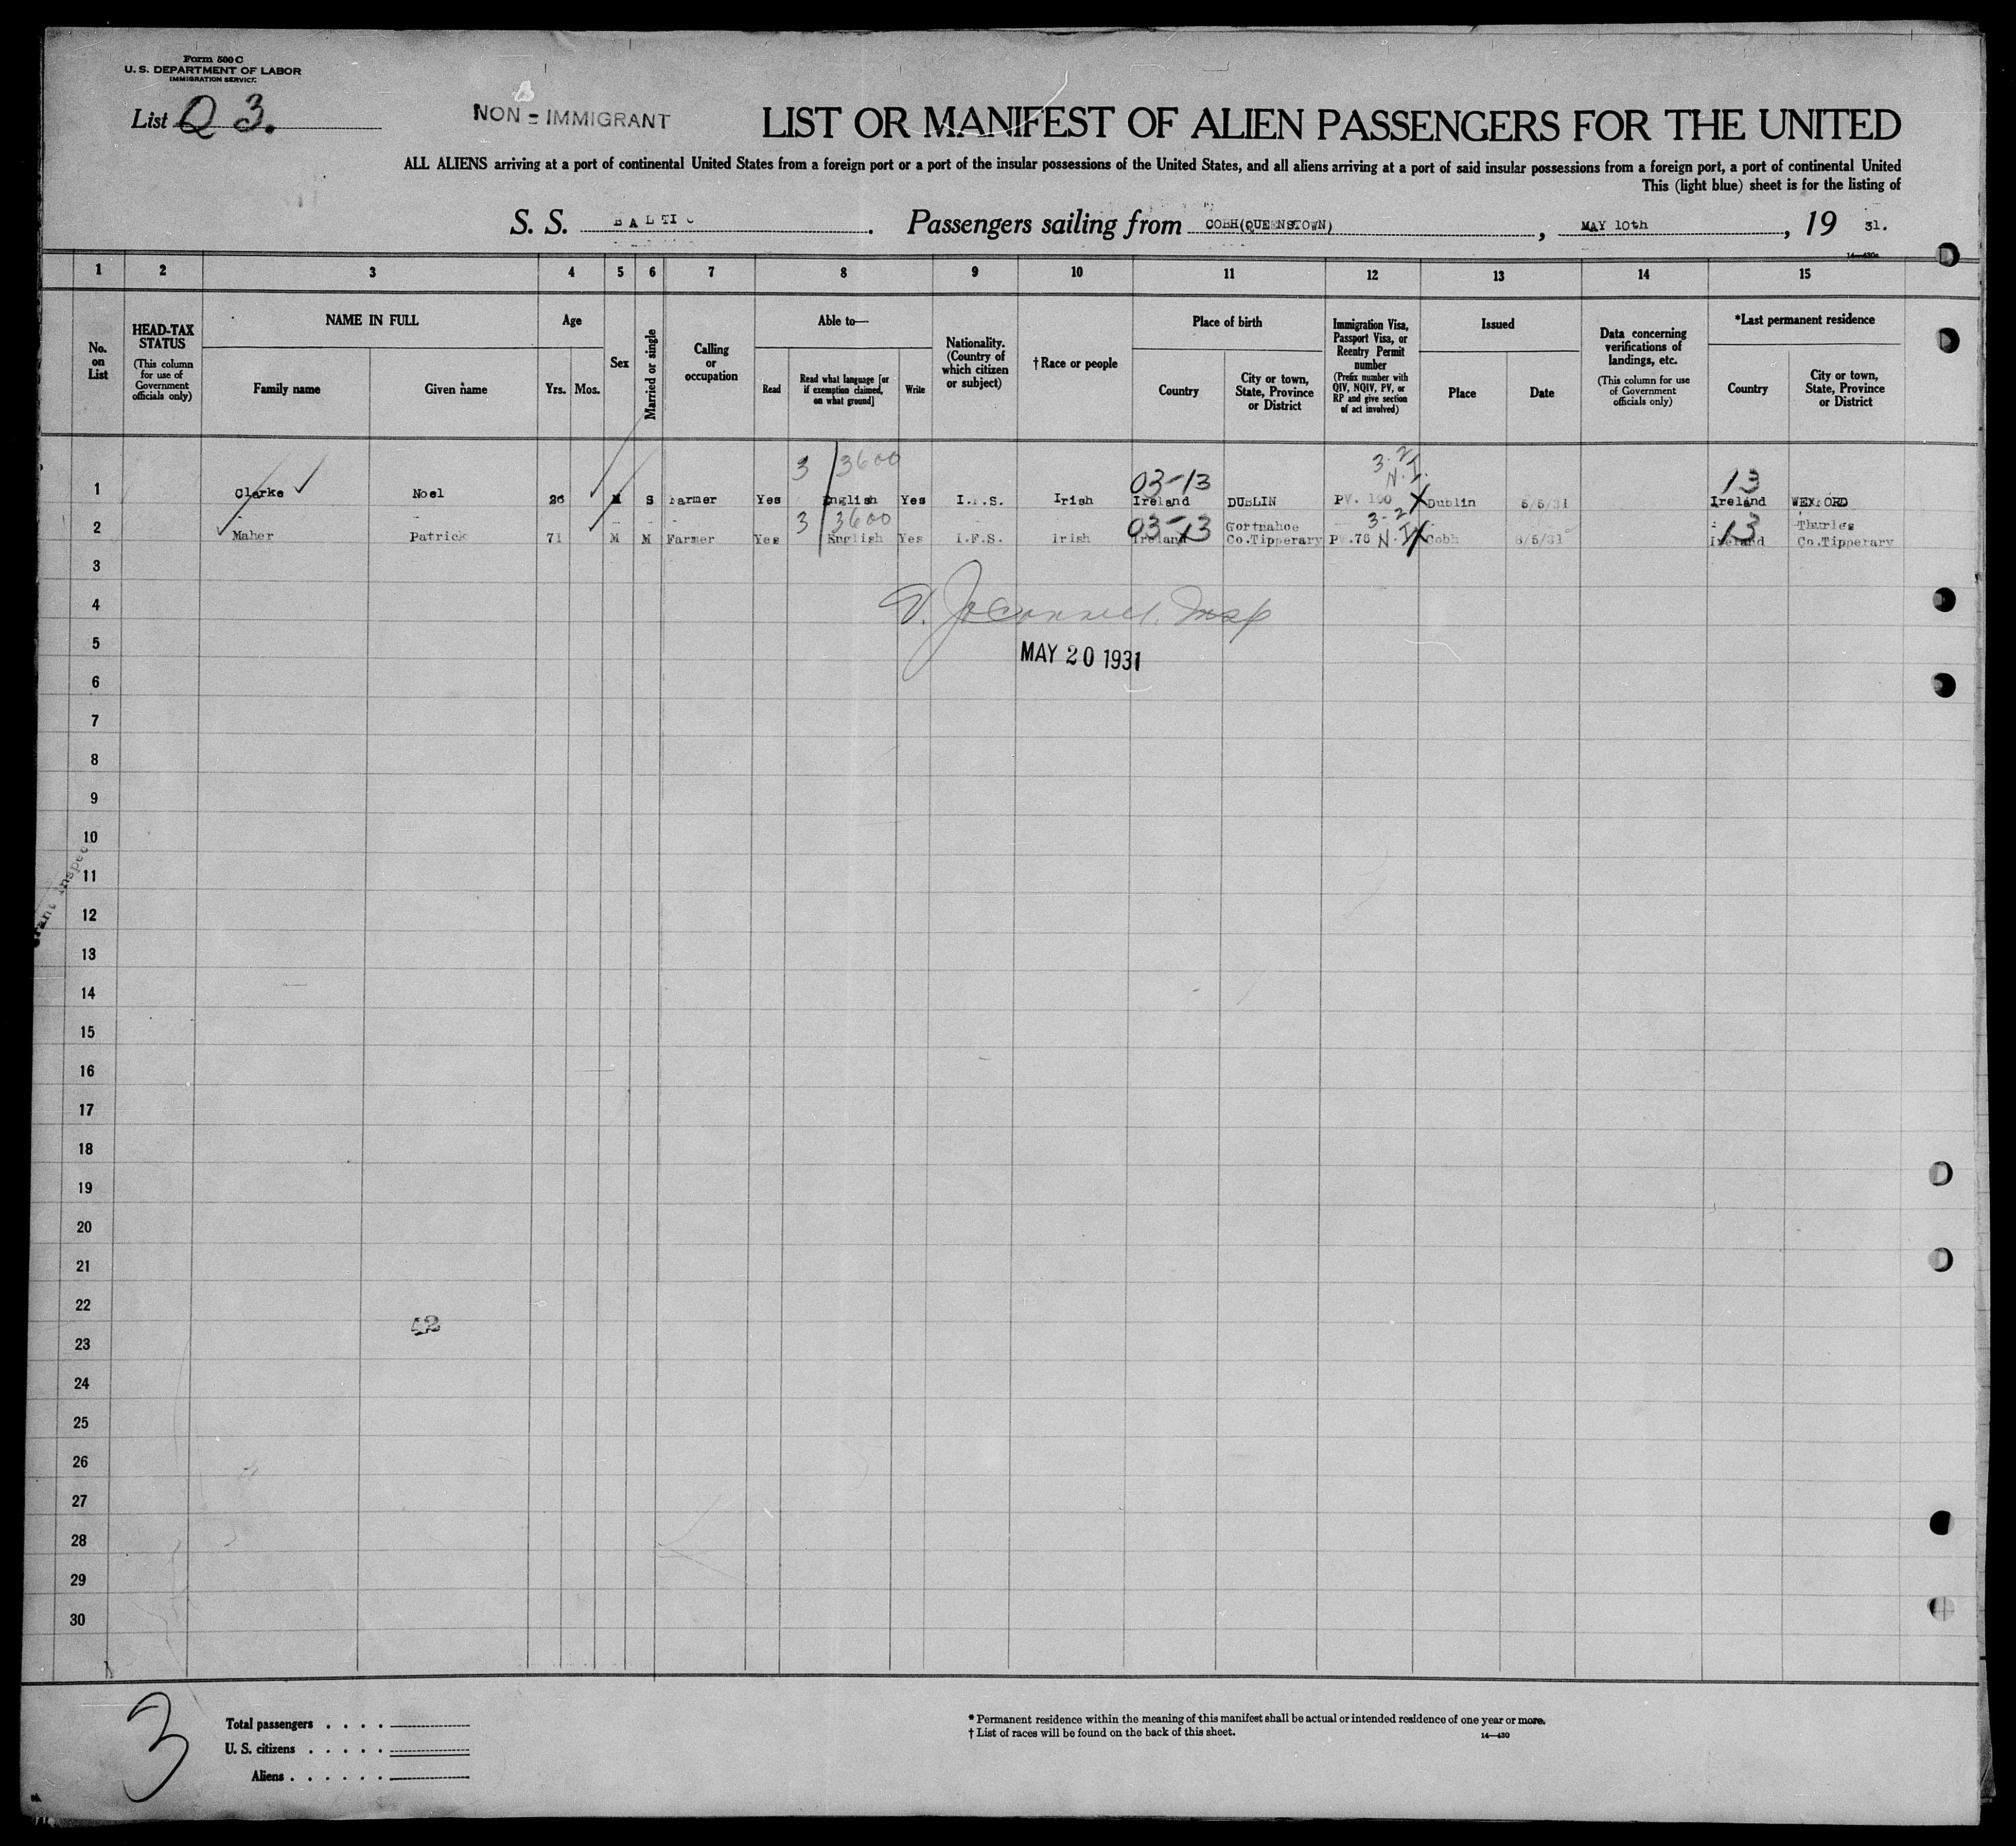 Form 500 C
U. S. DEPARTMENT OF LABOR
IMMIGRATION SERVICE
List Q 3.
NON-IMMIGRANT
LIST OR MANIFEST OF ALIEN PASSENGERS FOR THE UNITED
ALL ALIENS arriving at a port of continental United States from a foreign port or a port of the insular possessions of the United States, and all aliens arriving at a port of said insular possessions from a foreign port, a port of continental United
This (light blue) sheet is for the listing of
S. S. BALTIC. Passengers sailing from COBH(QUEENSTOWN), MAY 10th, 19 31.
1 2 3 4 5 6 7 8 9 10 11 12 13 14 15
No. on List
HEAD-TAX STATUS
(This column for use of Government officials only)
NAME IN FULL
Family name
Given name
Age
Yrs.
Mos.
Sex
Married or single
Calling or occupation
Able to—
Read
Read what language [or if exemption claimed, on what ground]
Write
Nationality. (Country of which citizen or subject)
† Race or people
Place of birth
Country
City or town, State, Province or District
Immigration Visa, Passport Visa, or Reentry Permit number
(Prefix number with QIV, NQIV, PV, or RP and give section of act involved)
Issued
Place
Date
Data concerning verifications of landings, etc.
(This column for use of Government officials only)
*Last permanent residence
Country
City or town, State, Province or District
3 3600 3-2 N.I.
03-13 13
1 Clarke Noel 26 M S Farmer Yes English Yes I.F.S. Irish Ireland DUBLIN PV. 100 Dublin 5/5/31 Ireland WEXFORD
3 3600 03-13 3-2 N.I. 13
Gortnahoe Thurles
2 Maher Patrick 71 M M Farmer Yes English Yes I.F.S. Irish Ireland Co.Tipperary PV.76 Cobh 8/5/31 Ireland Co.Tipperary
3
4
5
MAY 20 1931
6
7
8
9
10
11
12
13
14
15
16
17
18
19
20
21
22
42
23
24
25
26
27
28
29
30
3
Total passengers
U. S. citizens
Aliens
* Permanent residence within the meaning of this manifest shall be actual or intended residence of one year or more.
† List of races will be found on the back of this sheet.
14—430